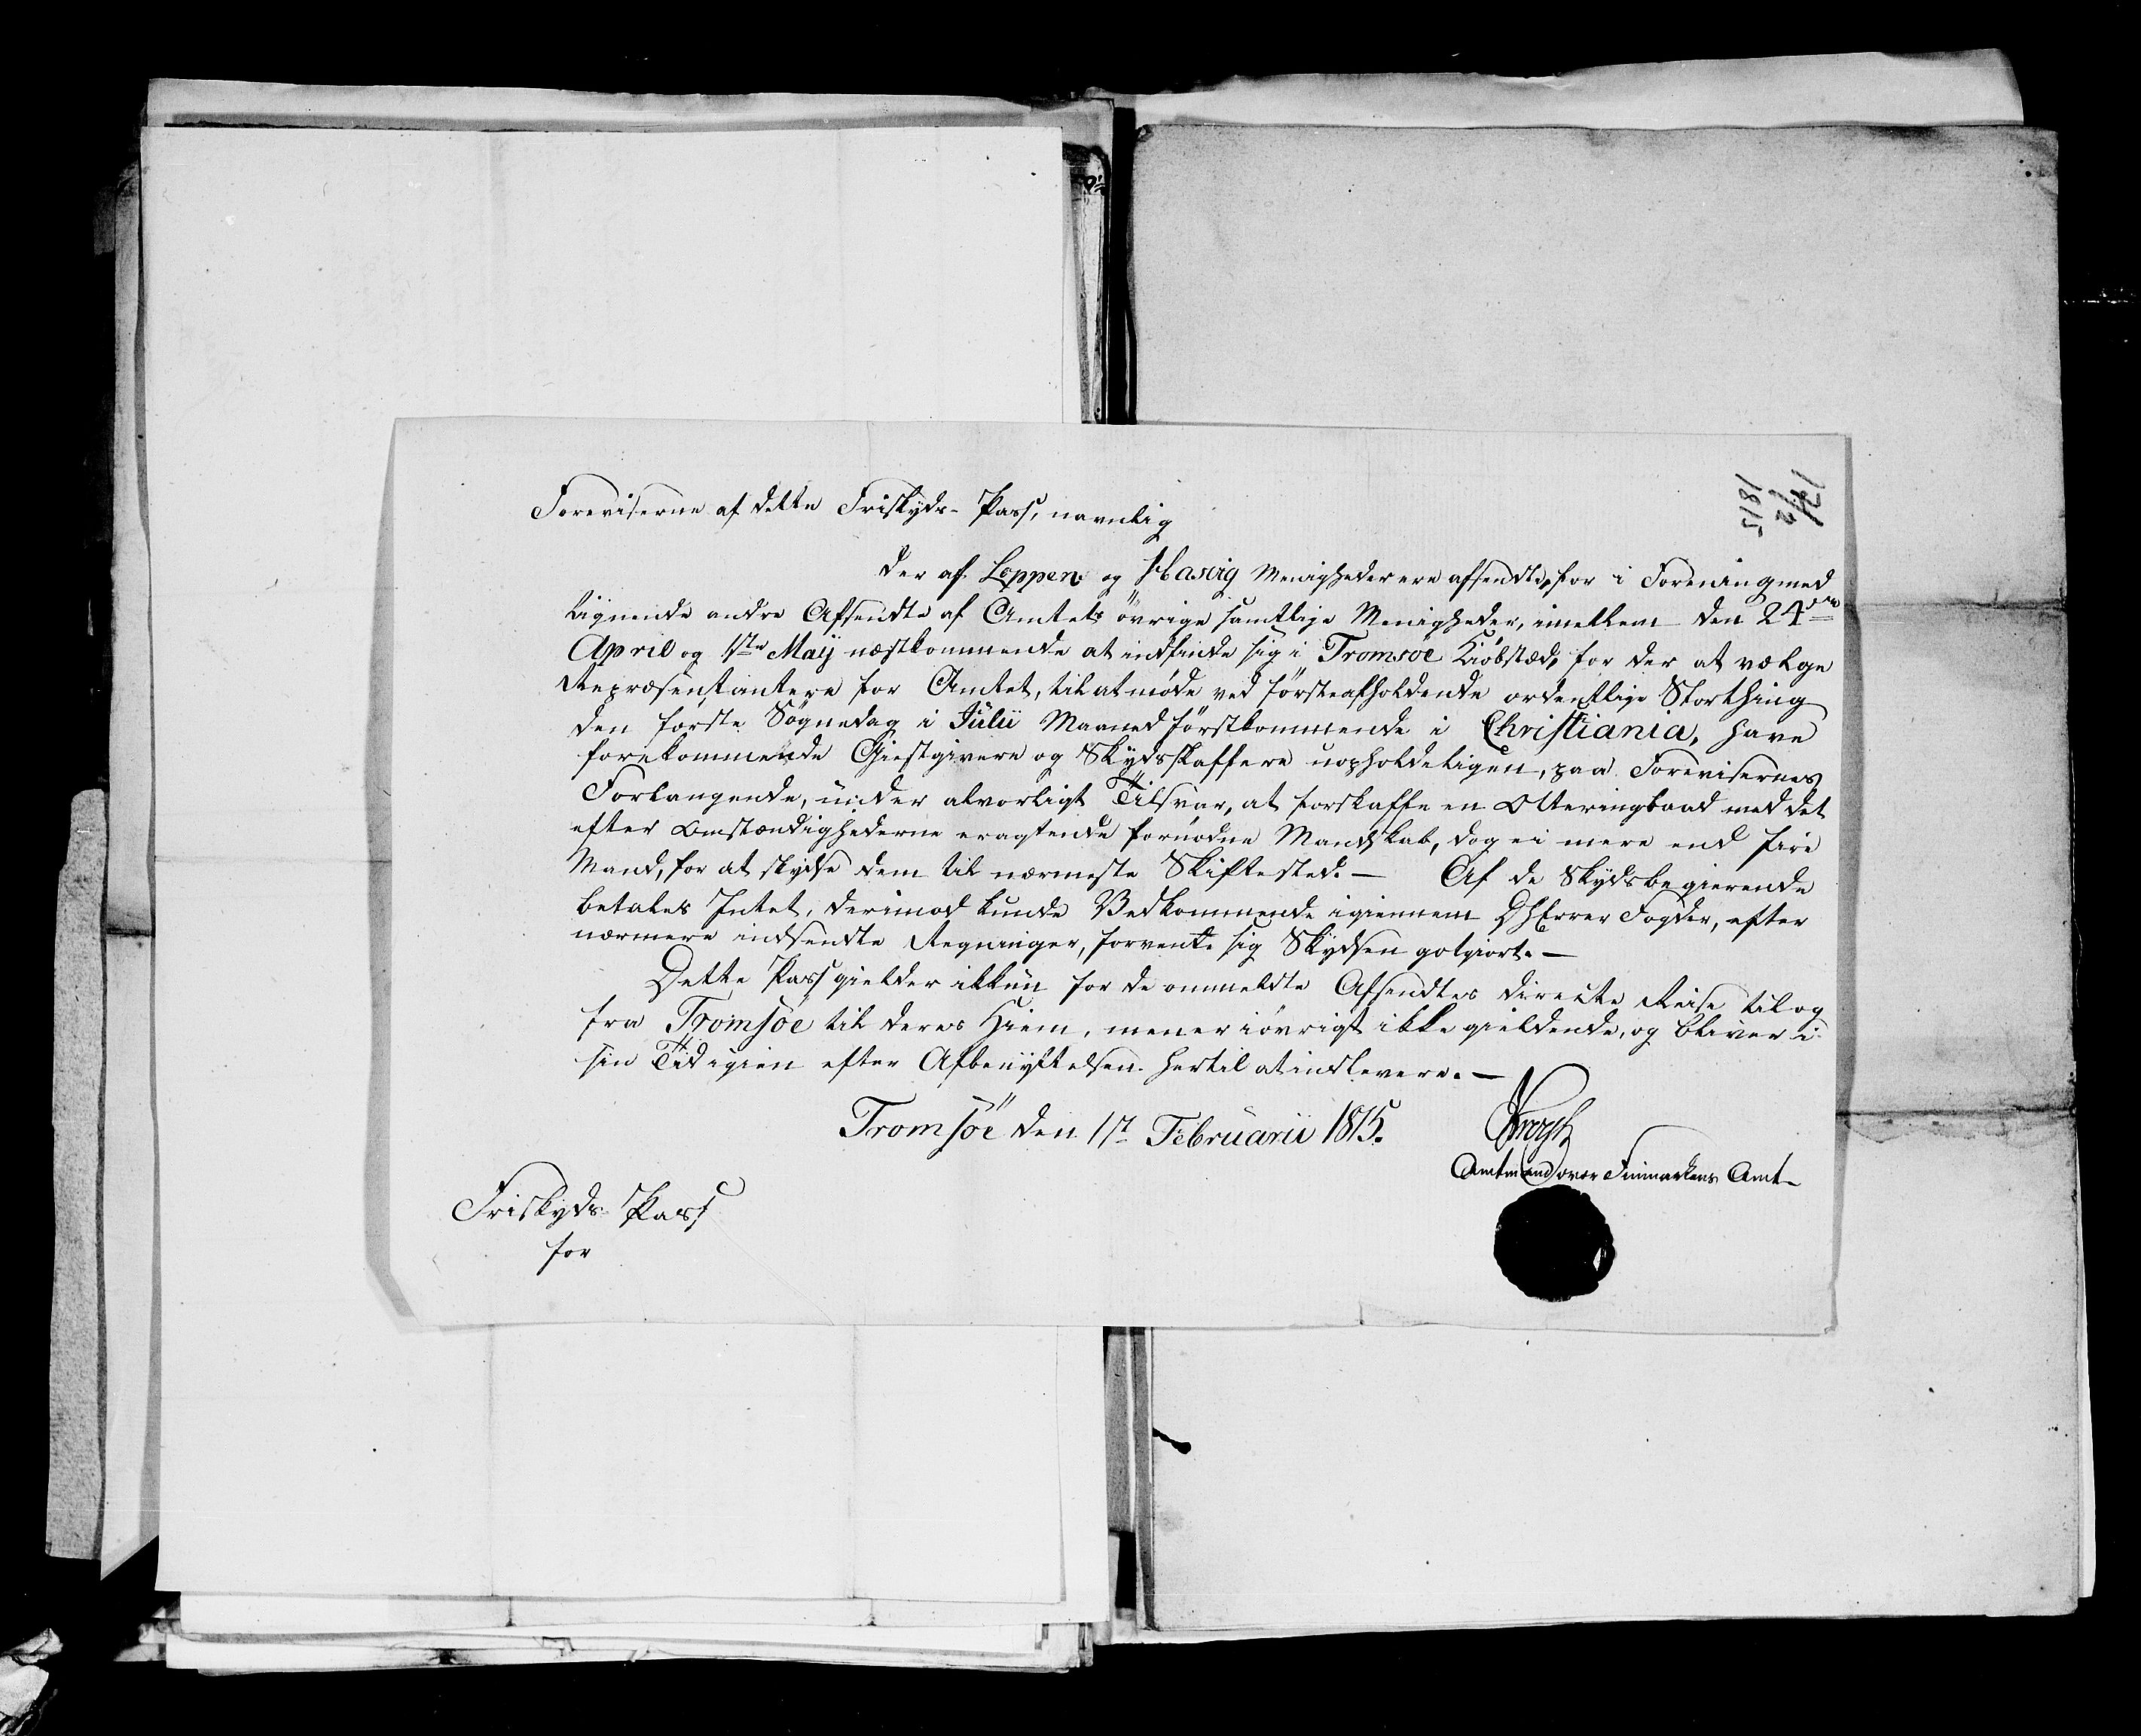 1815
1/2
Foreviserne af dette Friskyds-Pass, navnlig
der af Loppen og Hasvig Menigheder ere afsendte, for i Forening med
lignende andre Afsendte af Amtets övrige samtlige Menigheder, imellem den 24de
April og 1ste Maij næstkommende at indfinde sig i Tromsöe Kiöbstæd, for der at vælge
Repræsentantere for Amtet, til at möde ved förste afholdende ordentlige Storthing
den förste Sögnedag i Julii Maaned förstkommende i Christiania, have
forekommende Giestgivere og Skydsskaffere uopholdeligen, paa Forevisernes
Forlangende, under alvorligt Tilsvar, at forskaffe en Otteringbaad med det
efter Omstændighederne eragtende fornödne Mandskab, dog ei mere end fire
Mand, for at skydse dem til nærmeste Skiftested. — Af de Skydsbegierende
betales Intet, derimod kunde Vedkommende igiennem DHErrer Fogder, efter
nærmere indsendte Regninger, forvente sig Skydsen godgiort. —
Dette Pass gielder ikkun for de ommeldte Afsendtes directe Reise til og
fra Tromsöe til deres Hiem, men er iövrigt ikke gieldende, og bliver i
sin Tid igien efter Afbenyttelsen hertil at indlevere. —
Tromsöe den 1st Februarii 1815.
Krogh
Amtmand over Finmarkens Amt
Friskyds-Pass
for